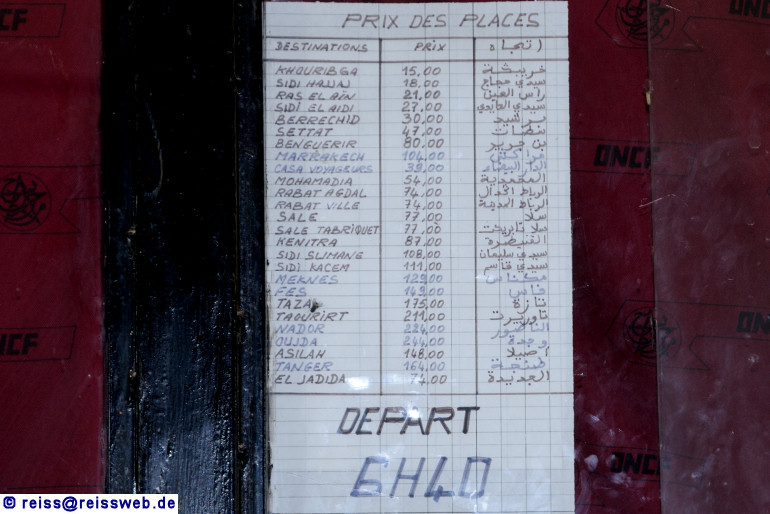 PRIX DES PLACES
DESTINATIONS PRIX اتجاه
KHOURIBGA 15,00 خريبكة
SIDI HAJJAJ 18,00 سيدي حجاج
RAS EL AÏN 21,00 راس العين
SIDI EL AIDI 27,00 سيدي العايدي
BERRECHID 30,00 برشيد
SETTAT 47,00 سطات
BENGUERIR 80,00 بن جرير
MARRAKECH 104,00 مراكش
CASA VOYAGEURS 39,00 الدار البيضاء
MOHAMADIA 54,00 المحمدية
RABAT AGDAL 74,00 الرباط أكدال
RABAT VILLE 74,00 الرباط المدينة
SALE 77,00 سلا
SALE TABRIQUET 77,00 سلا تابريكت
KENITRA 87,00 القنيطرة
SIDI SLIMANE 108,00 سيدي سليمان
SIDI KACEM 111,00 سيدي قاسم
MEKNES 129,00 مكناس
FES 149,00 فاس
TAZA 175,00 تازة
TAOURIRT 211,00 تاوريرت
NADOR 224,00 الناضور
OUJDA 244,00 وجدة
ASILAH 148,00 أصيلا
TANGER 164,00 طنجة
EL JADIDA 74,00 الجديدة
DEPART
6H40
ONCF
ONCF
ONCF
ONCF
© reiss@reissweb.de